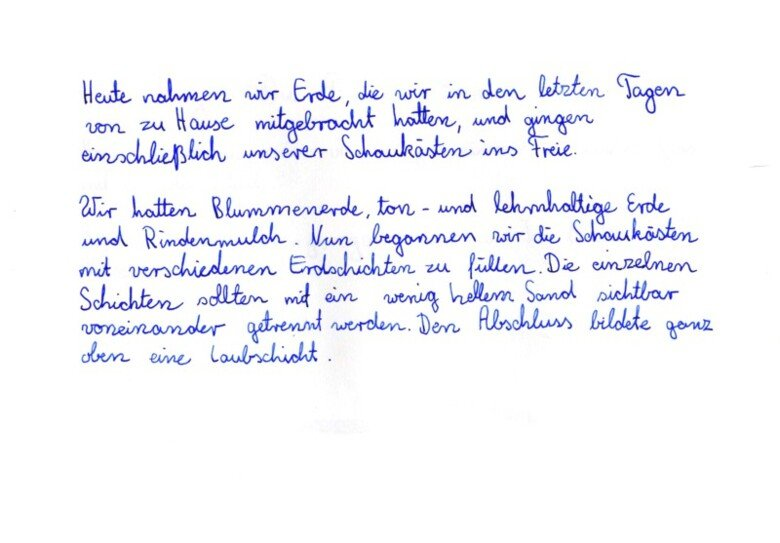 Heute nahmen wir Erde, die wir in den letzten Tagen
von zu Hause mitgebracht hatten, und gingen
einschließlich unserer Schaukästen ins Freie.
Wir hatten Blummenerde, ton- und lehmhaltige Erde
und Rindenmulch. Nun begannen wir die Schaukästen
mit verschiedenen Erdschichten zu füllen. Die einzelnen
Schichten sollten mit ein wenig hellem Sand sichtbar
voneinander getrennt werden. Den Abschluss bildete ganz
oben eine Laubschicht.